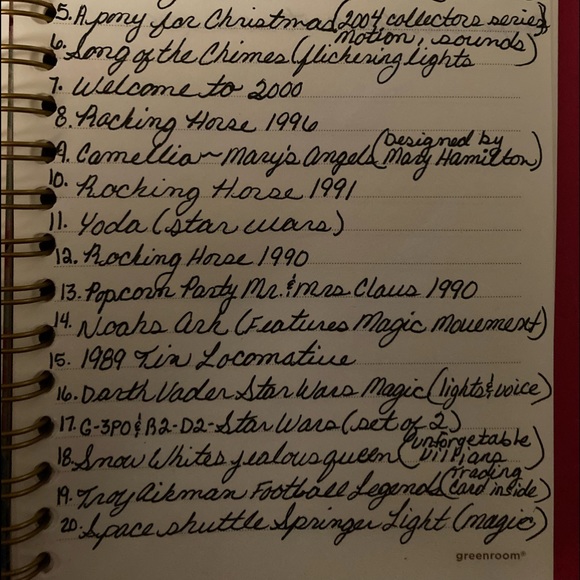 5. A pony for Christmas (2004 collectors series)
6. Song of the Chimes (flickering lights motion, sounds)
7. Welcome to 2000
8. Rocking Horse 1996
9. Camellia ~ Mary's Angels (Designed by Mary Hamilton)
10. Rocking Horse 1991
11. Yoda (star wars)
12. Rocking Horse 1990
13. Popcorn Party Mr. & Mrs Claus 1990
14. Noahs Ark (Features Magic Movement)
15. 1989 Tin Locomotive
16. Darth Vader Star Wars Magic (lights & voice)
17. C-3PO & R2-D2-Star Wars (set of 2)
18. Snow Whites jealous queen (unforgetable villians)
19. Troy Aikman Football Legends (Trading card inside)
20. Space shuttle Springer Light (magic)
greenroom®